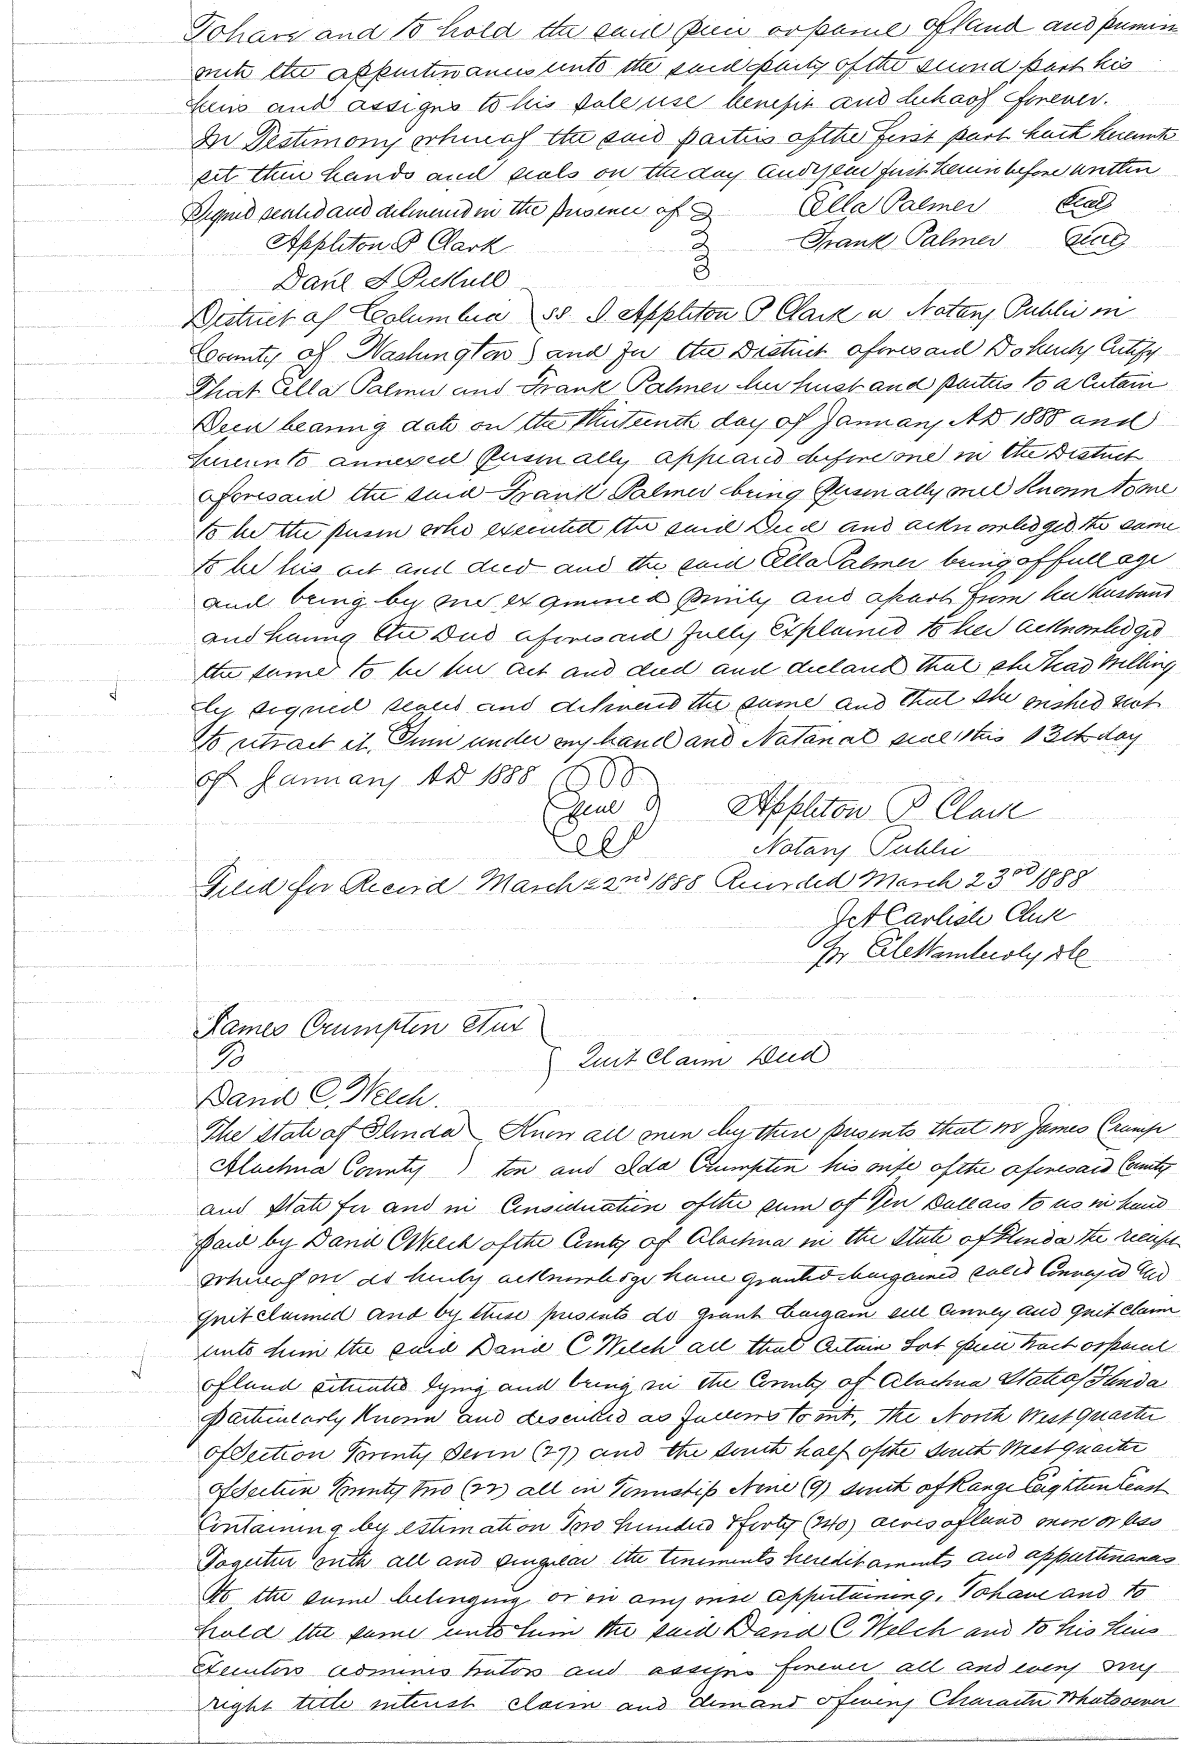 To have and to hold the said piece or parcel of land and premin
with the appurtinances unto the said party of the second part his
heirs and assigns to his sole use benefit and behoof forever.
In Testimony whereof the said parties of the first part hath hereunto
set their hands and seals on the day and year first herein before written
Signed sealed and delivered in the presence of Ella Palmer Seal
Appleton P Clark Frank Palmer Seal
Danl
District of Columbia ) SS I Appleton P Clark a Notary Public in
County of Washington ) and for the District aforesaid Do hereby Certify
That Ella Palmer and Frank Palmer her husband parties to a Certain
Deed bearing date on the thirteenth day of January AD 1888 and
hereunto annexed personally appeared before me in the District
aforesaid the said Frank Palmer being personally well Known to me
to be the person who executed the said Deed and acknowledged the same
to be his act and deed and the said Ella Palmer being of full age
and being by me examined privily and apart from her husband
and having the Deed aforesaid fully Explained to her acknowledged
the same to be her act and deed and declared that she had willing
ly signed sealed and delivered the same and that she wished not
to retract it. Given under my hand and Notarial seal this 13th day
of January AD 1888
Seal Appleton P Clark
Notary Public
Filed for Record March 22nd 1888 Recorded March 23rd 1888
J A Carlisle Clerk
James Crumpton et ux
To } Quit Claim Deed
David C. Welch.
The State of Florida ) Know all men by these presents that we James Crump
Alachua County ) ton and Ida Crumpton his wife of the aforesaid County
and State for and in Consideration of the sum of Ten Dollars to us in hand
paid by David C Welch of the County of Alachua in the State of Florida the receipt
whereof we do hereby acknowledge have granted bargained sold Conveyed and
quit claimed and by these presents do grant bargain sell Convey and quit claim
unto him the said David C Welch all that Certain Lot piece tract or parcel
of land situated lying and being in the County of Alachua State of Florida
particularly Known and described as follows to wit, the North West quarter
of Section Twenty Seven (27) and the south half of the South West quarter
of Section Twenty two (22) all in Township Nine (9) south of Range Eighteen East
Containing by estimation Two hundred & forty (240) acres of land more or less
Together with all and singular the tenements hereditaments and appurtenances
to the same belonging or in any wise appertaining. To have and to
hold the same unto him the said David C Welch and to his heirs
Executors administrators and assigns forever all and every my
right title interest claim and demand of every Character Whatsoever